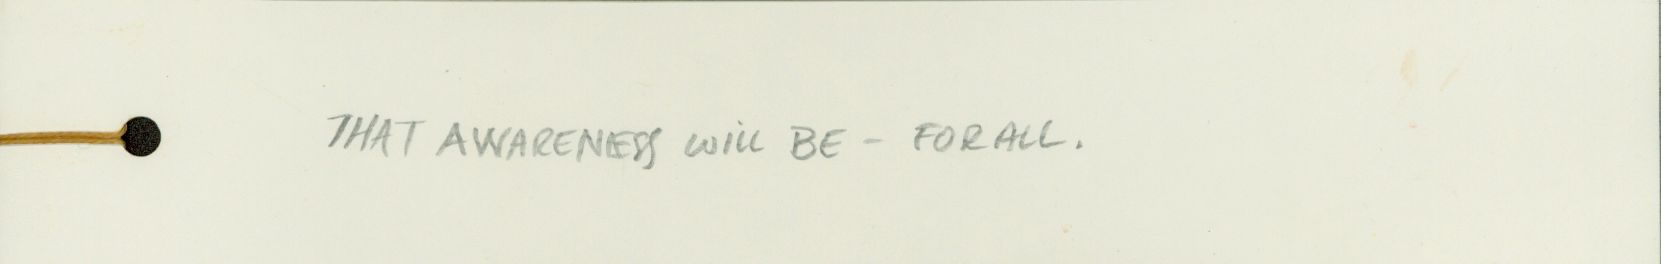 THAT AWARENESS WILL BE - FOR ALL.